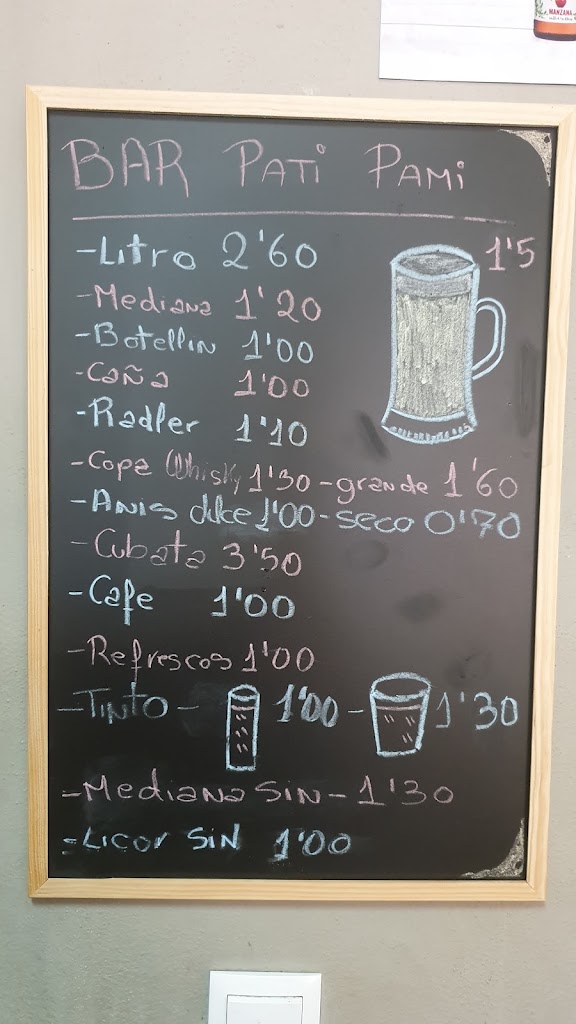 MANZANA
BAR PATI PAMI
-Litro 2'60
1'5
-Mediana 1'20
-Botellin 1'00
-Caña 1'00
-Radler 1'10
-Copa Whisky 1'30 -grande 1'60
-Anis dulce 1'00 -seco 0'70
-Cubata 3'50
-Cafe 1'00
-Refrescos 1'00
-Tinto - 1'00 - 1'30
-Mediana Sin - 1'30
-Licor Sin 1'00